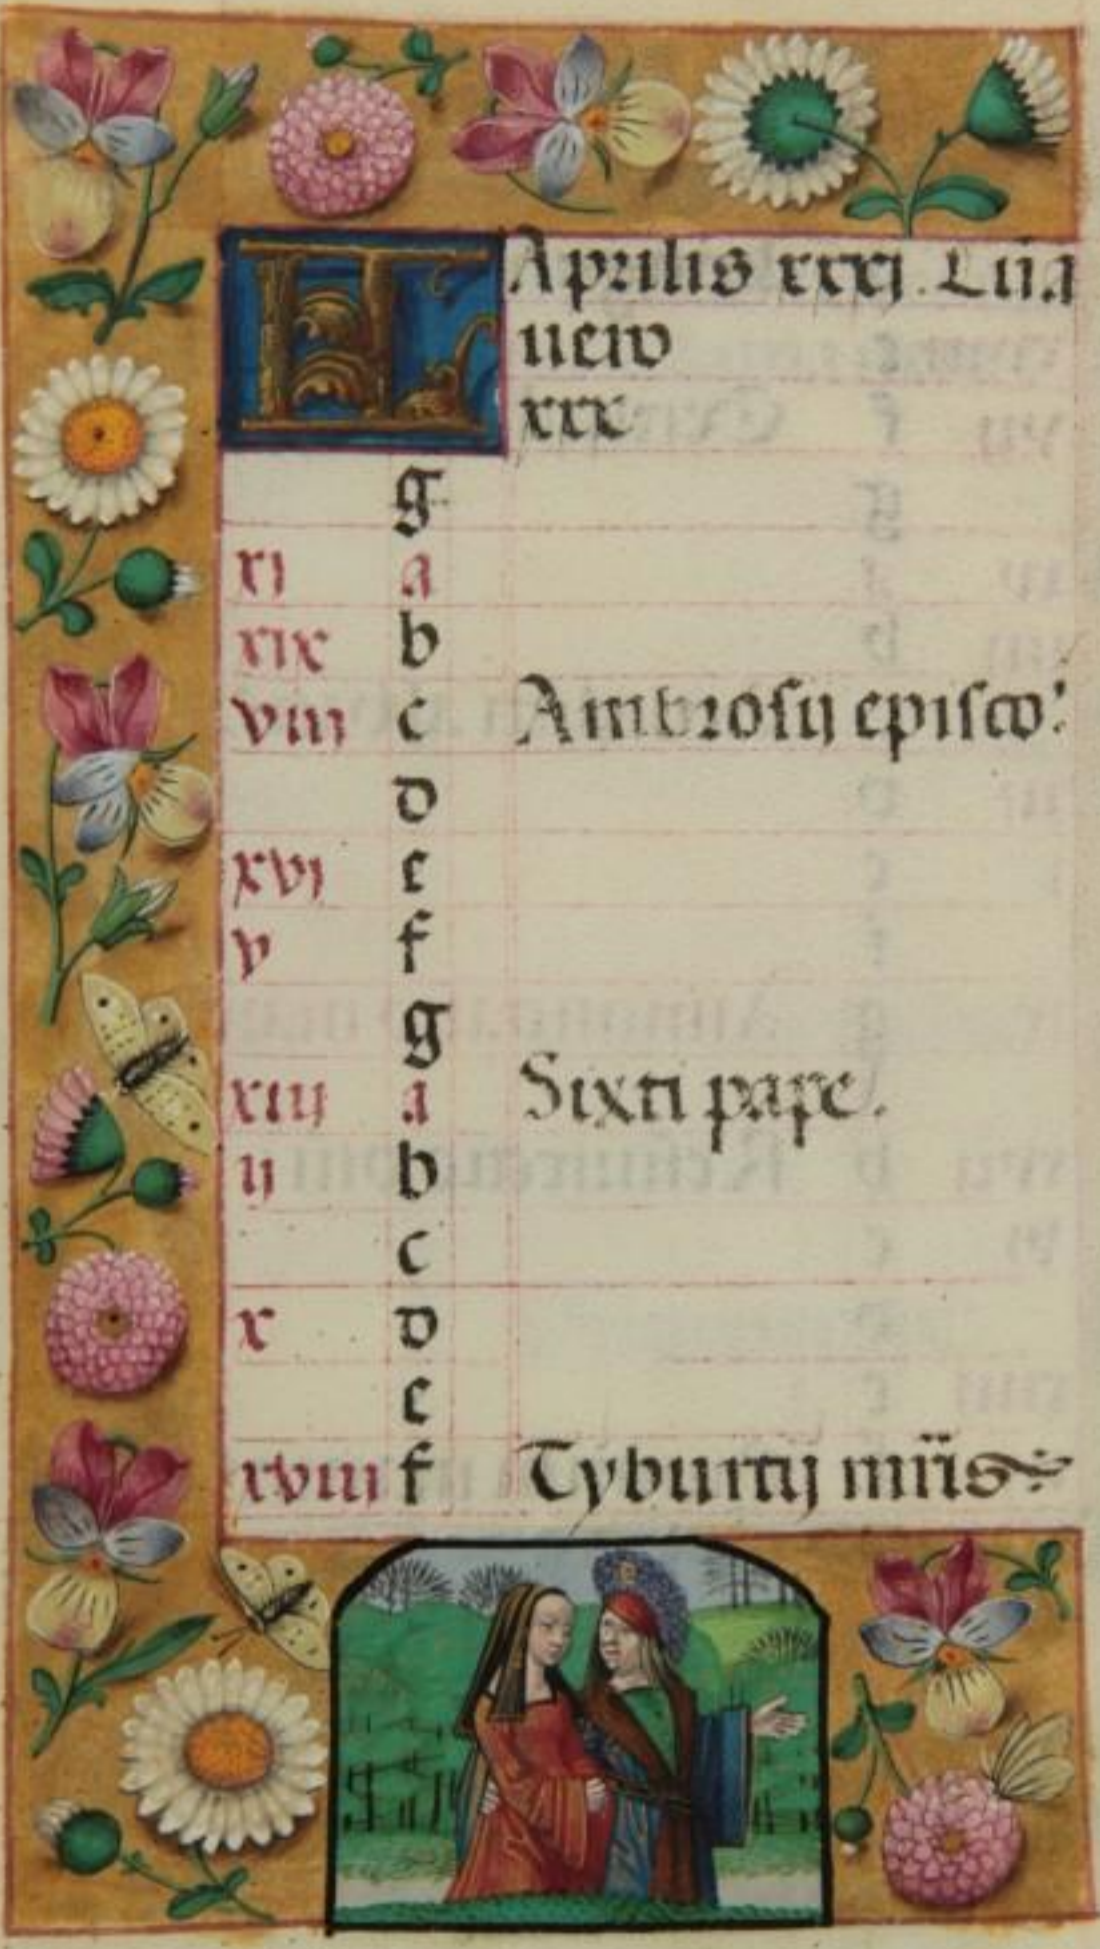 KL Aprilis xxxj. Lūa
vero
xxx
g
xj a
xix b
viij c Ambrosij episco:
d
xvj e
v f
g
xiij a Sixti pape.
ij b
c
x d
e
xviij f Tyburtij mr̄is